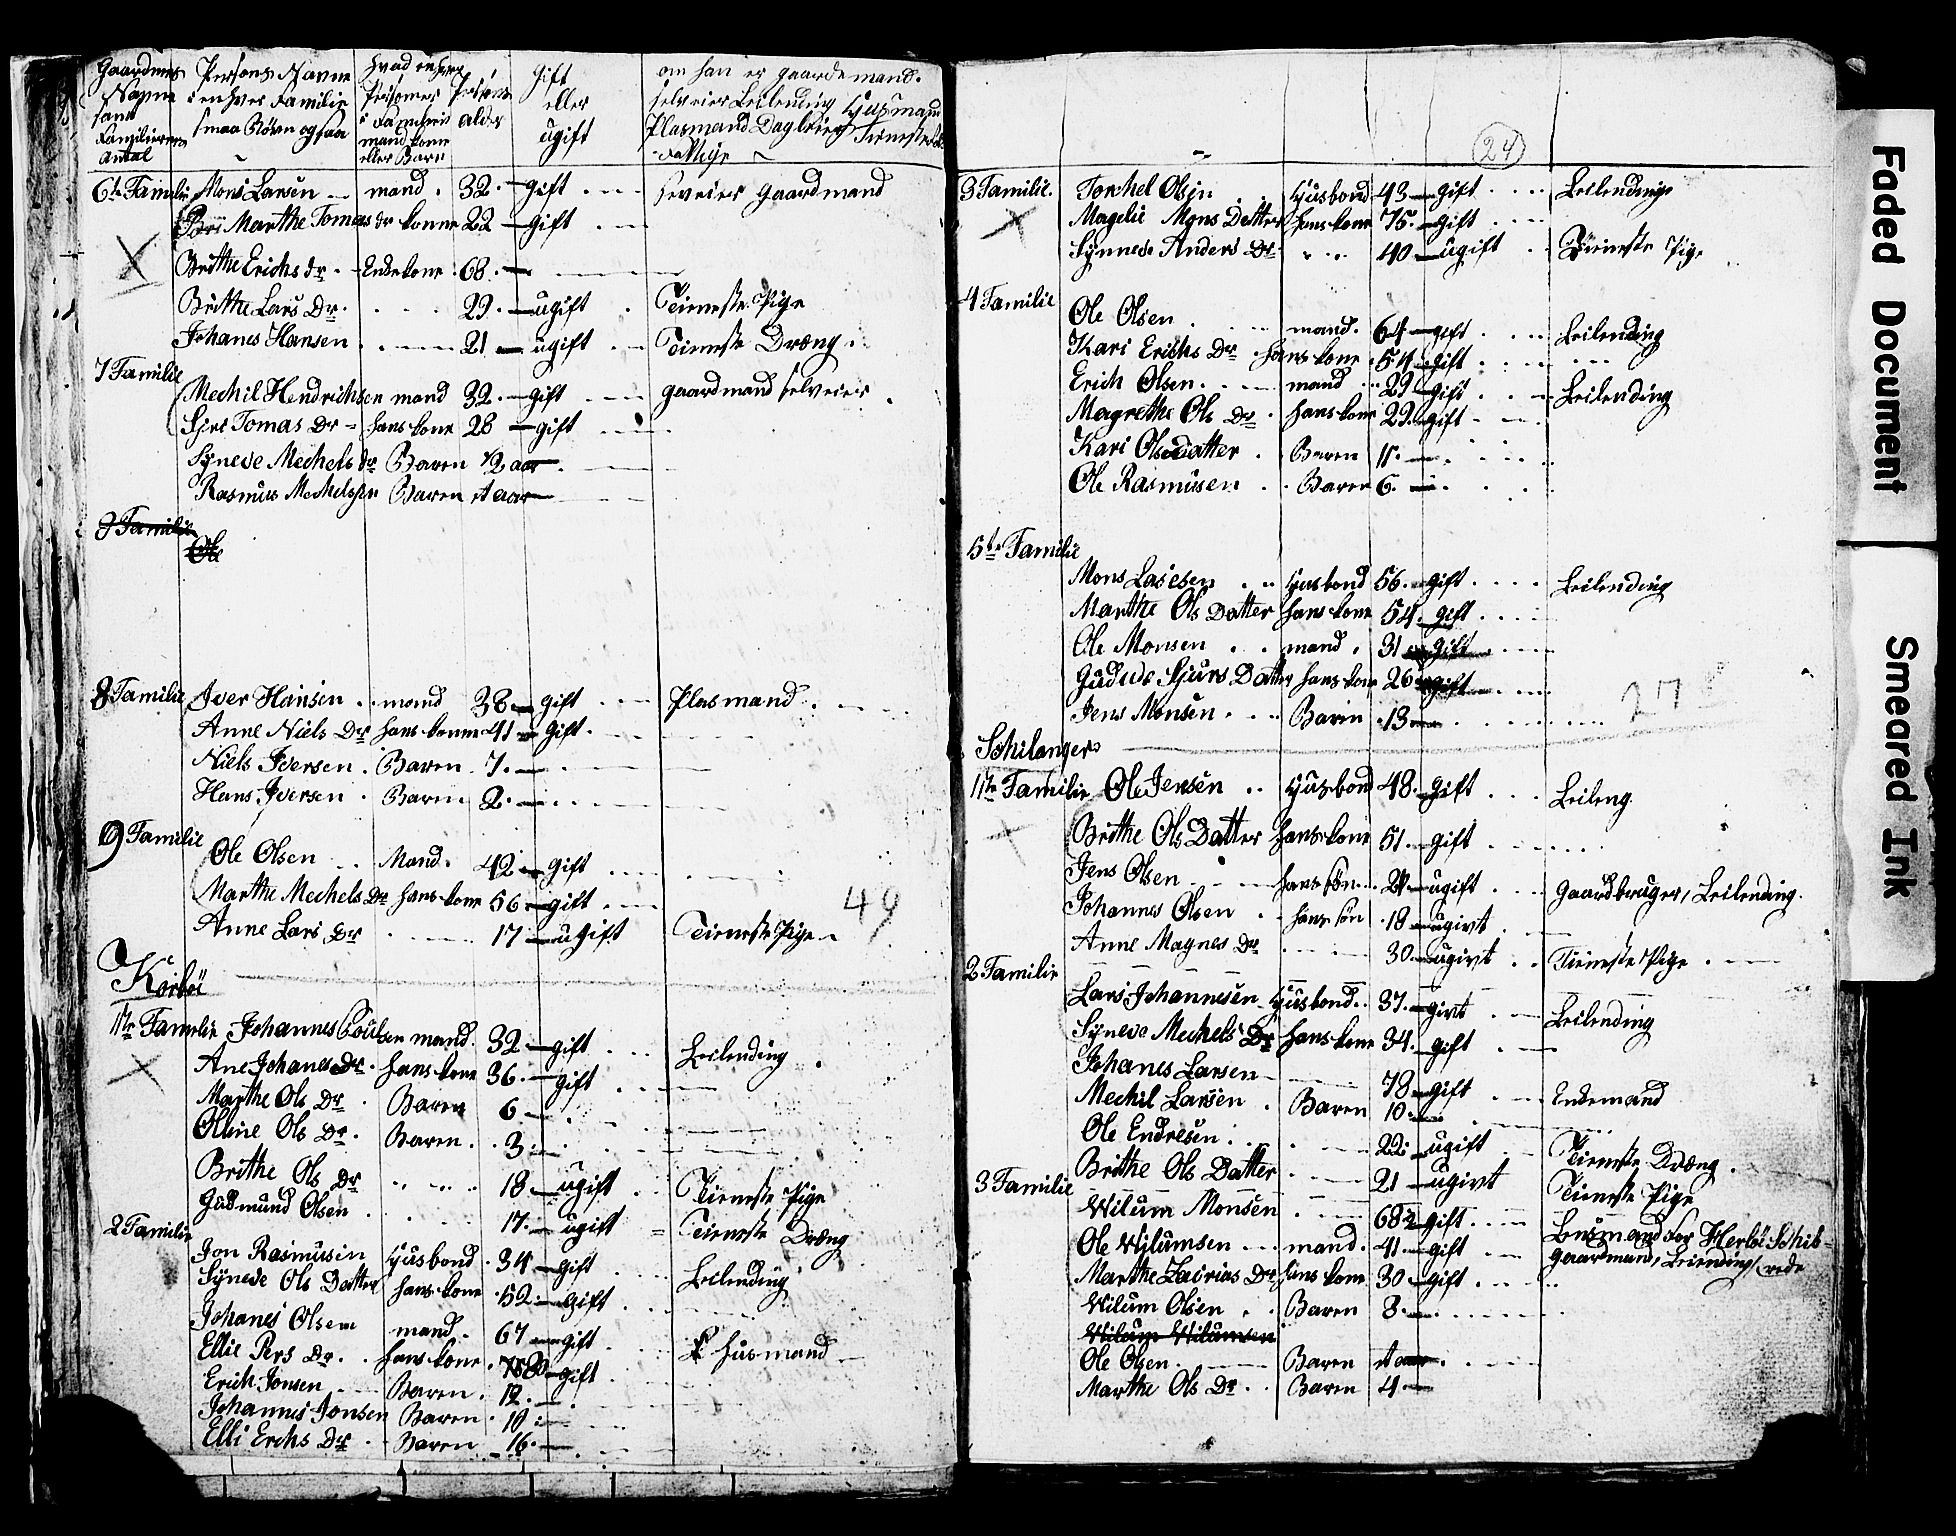 Gaardenes Persons Navne hvad enhver Gift om han er gaardemand
Navne i enhver Familie Personer Persons eller selveier Leilending Huusmand
samt smaa Børn ogsaa i Familien alder ugift Plasmand Dagleier Tieneste
Familiernes mand kone
Antal eller Barn
6te Familie Mons Larsen mand 32 gift selveier gaardmand
Marthe Tomas dr konne 22 gift
Brithe Erichs dr Enkekone 68
Brithe Lars Dr 29 ugift Tieneste Pige
Johanes Hansen 21 ugift Tieneste Dræng
7 Familie
Mechil Hendrichsen mand 32 gift gaardmand selveier
Tomas Dr hans kone 28 gift
Syneve Mechels dr Baren 1/2 aar
Rasmus Mechelsen Baren
8 Familie
Ole
8 Familie Iver Hansen mand 38 gift Plasmand
Anne Niels Dr hans konne 41 gift
Niels Iversen Baren 7
Hans Iversen Baren 2
9 Familie
Ole Olsen Mand 42 gift
Marthe Mechels Dr hans kone 56 gift
49
Anne Lars Dr 17 ugift Tieneste Pige
1te Familie Johannes Poulsen mand 32 gift Leilending
Ane Johanes Dr hans kone 36 gift
Marthe Ols Dr Baren 6
Oline Ols Dr Baren 3
Brithe Ols Dr 18 ugift Tieneste Pige
Gudmund Olsen 17 ugift Tieneste Dræng
2 Familie
Jon Rasmusen Husbond 34 gift Leilending
Synede Ols Datter hans kone 52 gift
Johanes Olsen mand 67 gift husmand
Ellie Pers Dr hans kone gift
Erich Jonsen Baren 12
Johannes Jonsen Baren 10
Elli Erchs Dr Baren 16
24
3 Familie Torchel Olsen Husbond 43 gift Leilending
Magelie Mons Datter hans kone 75 gift
Synneve Anders Dr 40 ugift Tieneste Pige
4 Familie
Ole Olsen mand 64 gift Leilending
Kari Erichs Dr hans kone 54 gift
Erich Olsen mand 29 gift Leilending
Magrethe Ols Dr hans kone 29 gift
Kari Olsdatter Baren 11
Ole Rasmusen Baren 6
5te Familie
Mons Lassesen Husbond 56 gift Leilending
Marthe Ols Datter hans kone 54 gift
Ole Monsen mand 31 gift
Sjurs Datter hans kone 26 gift
27
Jens Monsen Baren 13
Schilanger
1te Familie Ole Jensen Husbond 48 gift Leileng
Brithe Ols Datter hans kone 51 gift
Jens Olsen hans søn ugift Gaardbruger, Leilending
Johannes Olsen hans søn 18 ugivt
Anne Magnes Dr 30 ugivt Tieneste Pige
2 Familie
Lars Johannesen Husbond 37 givt Leilending
Syneve Mechels Dr hans kone 34 gift
Johanes Larsen 78 gift Enkemand
Mechil Larsen Baren 10
Ole Endresen 22 ugift Tieneste Dræng
Brithe Ols Datter 21 ugivt Tieneste Pige
3 Familie
Wilum Monsen 68 2 gift Lensmand for Herløe Schib-
Ole Wilumsen mand 41 gift gaardmand, Leilending rede
Marthe Zacrias Dr hans kone 30 gift
Wilum Olsen Baren 8
Wilum Wilumsen
Ole Olsen Baren
Marthe Ols Dr Baren 4
Faded Document
Smeared Ink